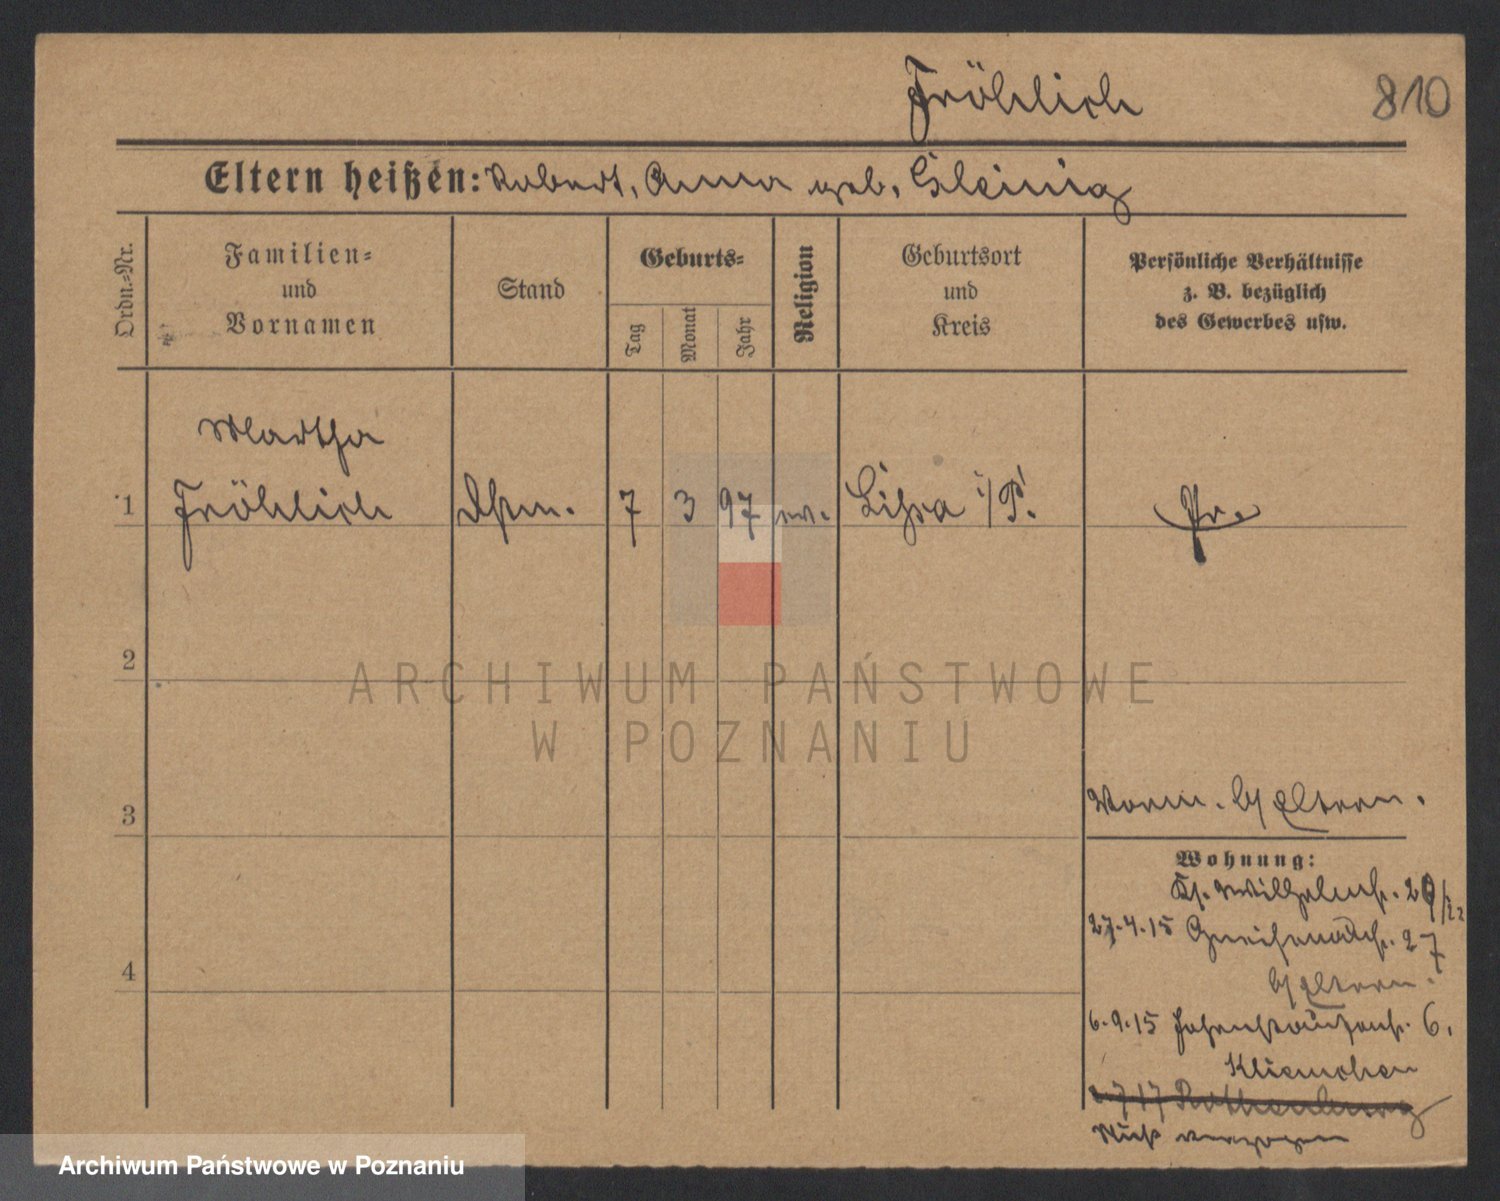 Fröhlich
810
Eltern heißen: Robert, Anna geb. Gleinig
Ordn.-Nr.
Familien-
und
Vornamen
Stand
Geburts-
Tag
Monat
Jahr
Religion
Geburtsort
und
Kreis
Persönliche Verhältnisse
z. B. bezüglich
des Gewerbes usw.
Martha
1 Fröhlich 7 3 97 ev. Lissa i/P. Pr.
2
3
4
Vorm. b/ Eltern.
Wohnung:
Wilhelmstr.
27.4.15 Gneisenaustr. 27
b/ Eltern.
6.9.15 Hohenstaufenstr. 6.
2.7.17 Rothenburg
Nicht verzogen
ARCHIWUM PAŃSTWOWE
W POZNANIU
Archiwum Państwowe w Poznaniu